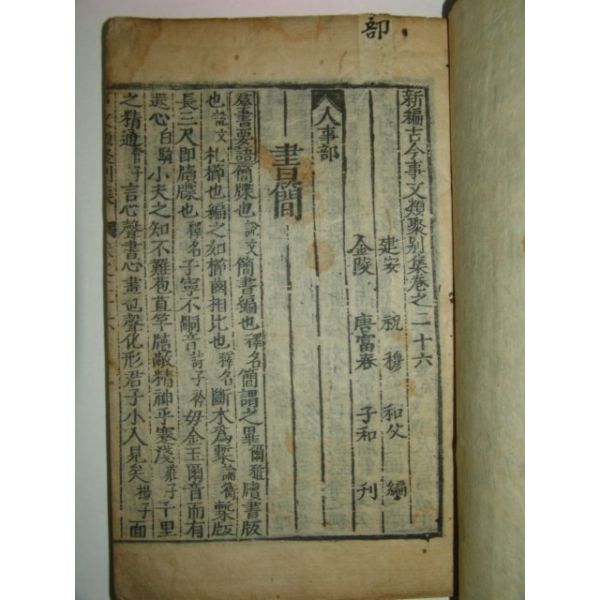 部
新編古今事文類聚別集卷之二十六
建安 祝穆 和父 編
金陵 唐富春 子和 刊
人事部
書簡
羣書要語簡牒也說文簡書編也釋名簡謂之畢爾雅牘書版
也說文札櫛也編之如櫛齒相比也釋名斷木爲槧論衡槧版
長三尺即牘牒也釋名子寧不嗣音詩子衿毋金玉爾音而有
遐心白駒小夫之知不離苞苴竿牘敝精神乎蹇淺莊子千里
之精通子言心聲書心畫也聲化形君子小人見矣揚子面